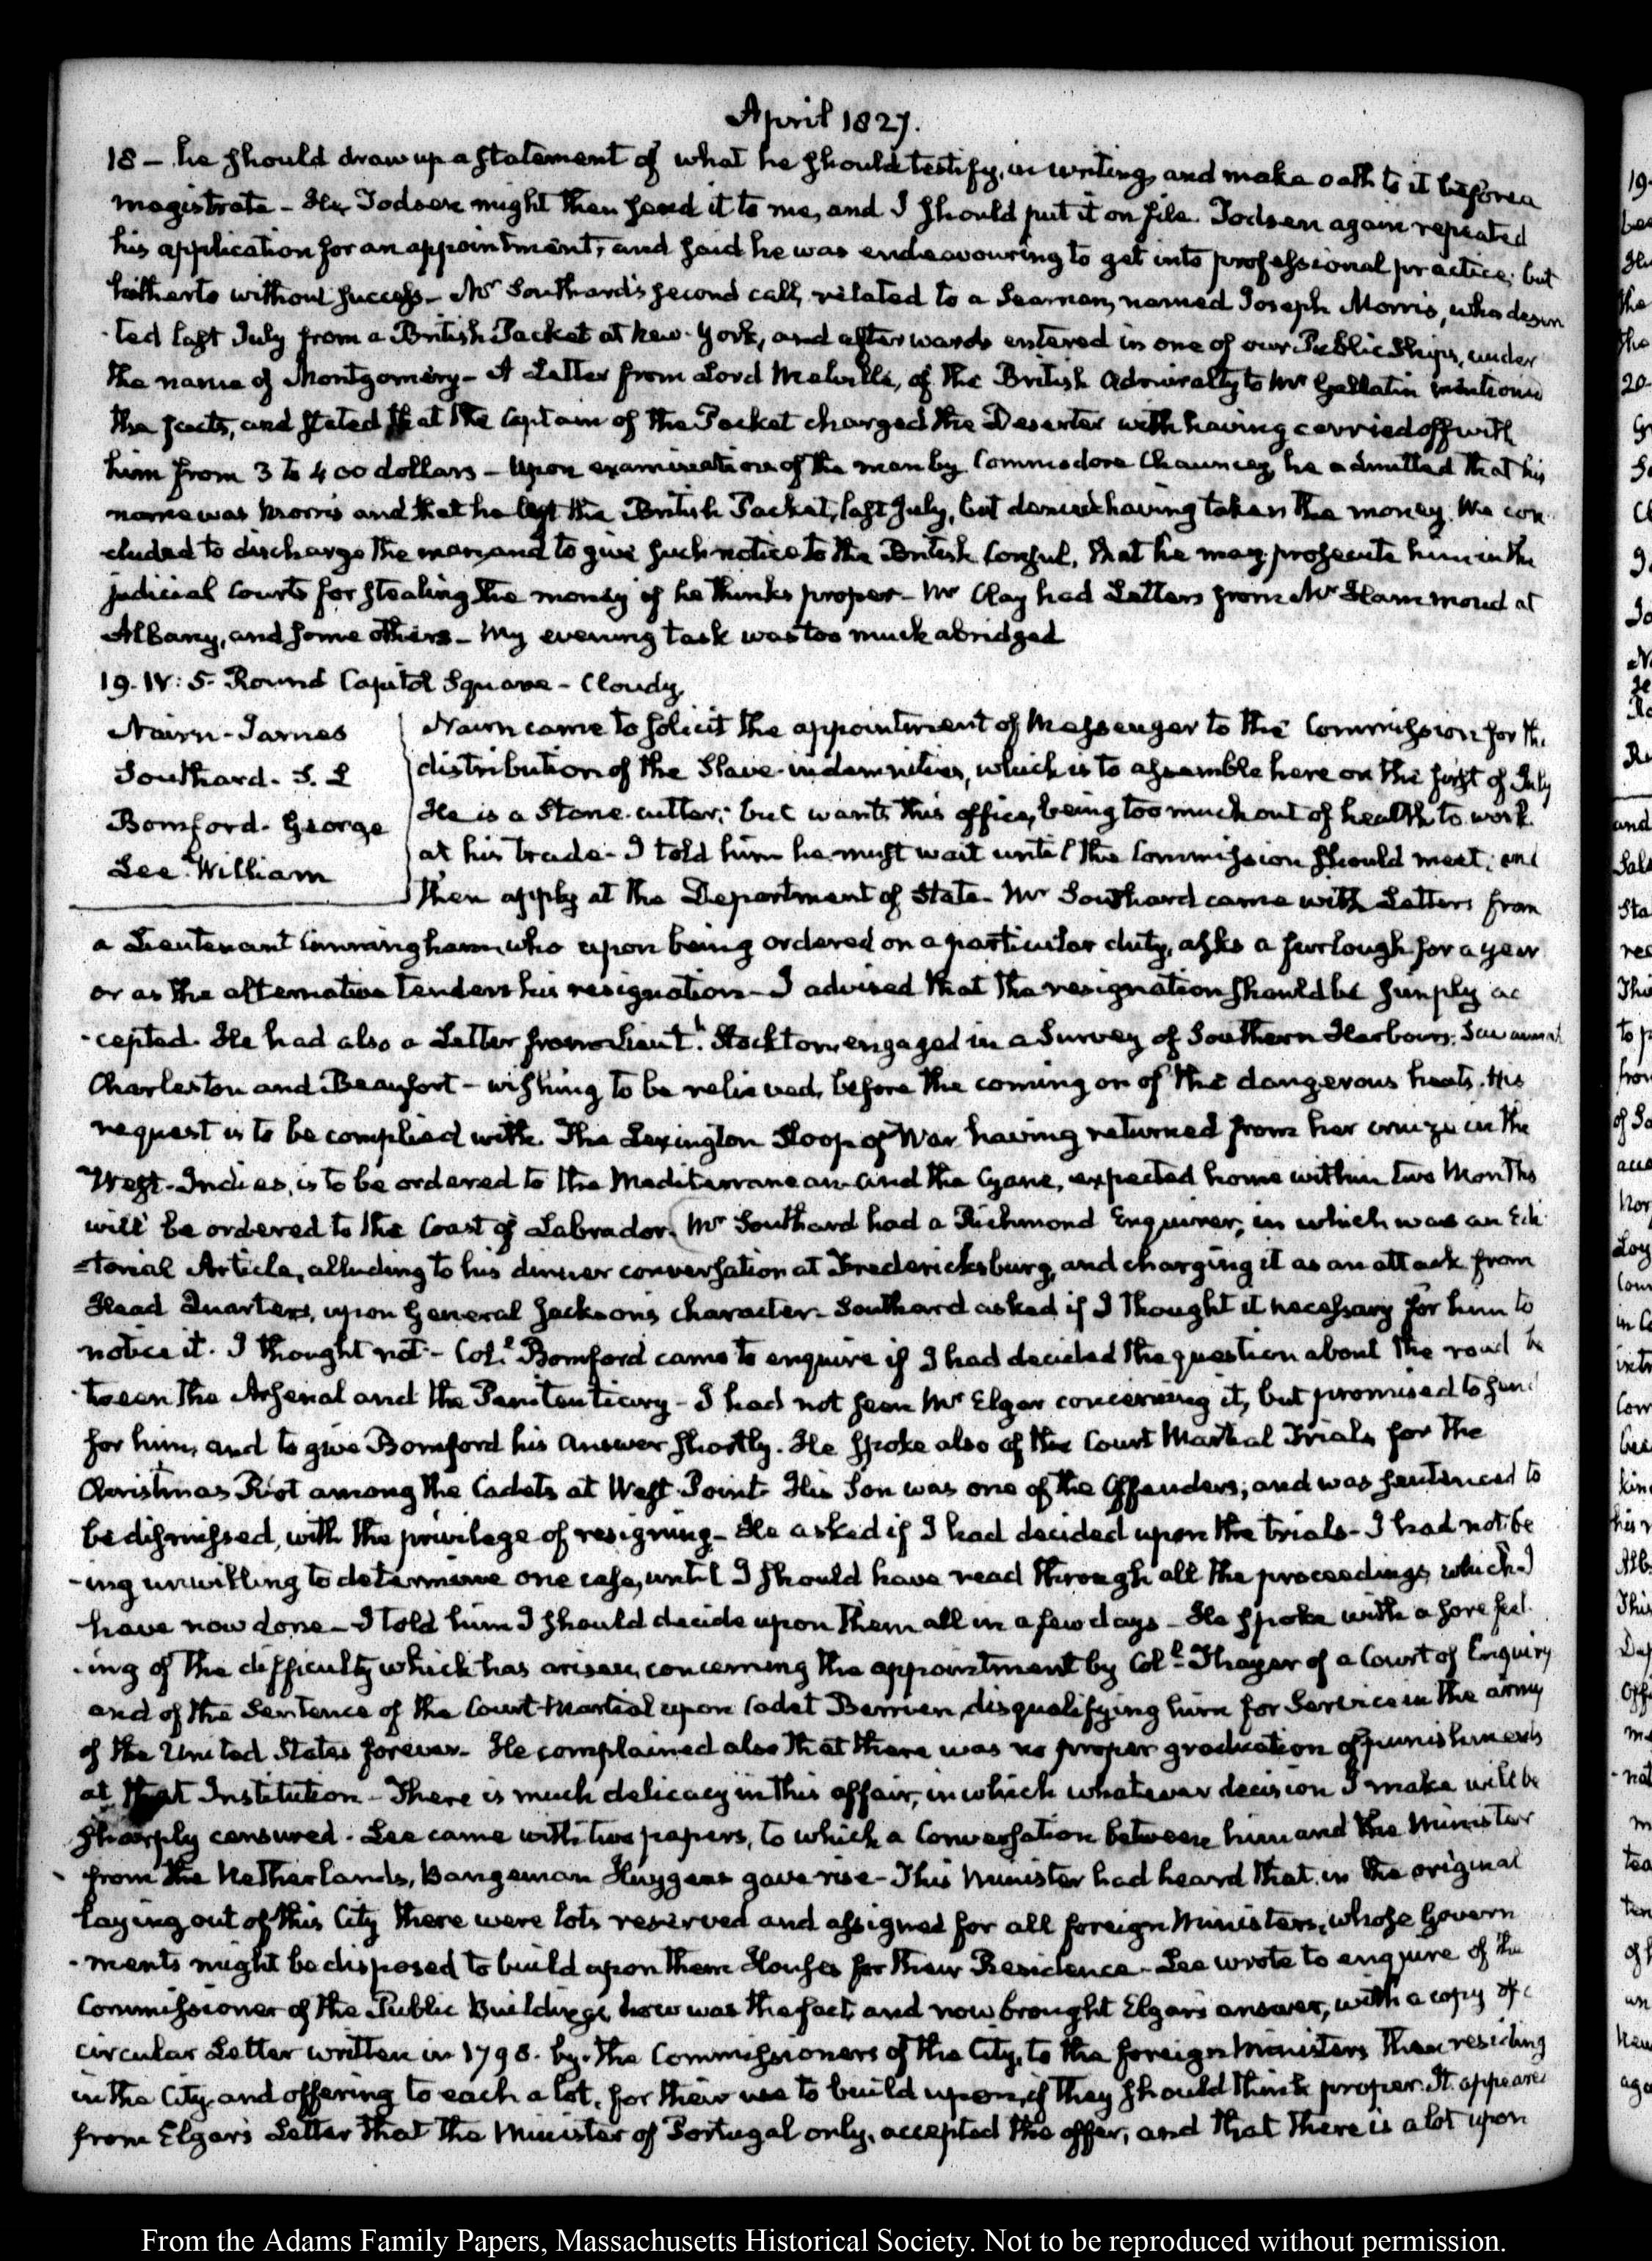 April 1827.
18 — he should draw up a statement of what he should testify, in writing, and make oath to it before a
magistrate – He, Todsen might then send it to me, and I should put it on file. Todsen again repeated
his application for an appointment, and said he was endeavouring to get into professional practice, but
hitherto without success – Mr Southard's second call, related to a Seaman, named Joseph Morris, who deser
-ted last July from a British Packet at New-York, and afterwards entered in one of our Public Ships, under
the name of Montgomery – A Letter from Lord Melville, of the British Admiralty to Mr Gallatin mentioned
the facts, and stated that the Captain of the Packet charged the Deserter with having carried off with
him from 3 to 400 dollars – Upon examination of the man by Commodore Chauncey, he admitted that his
name was Morris and that he left the British Packet, last July, but denied having taken the money. We con
-cluded to discharge the man, and to give such notice to the British Consul, that he may prosecute him in the
judicial Courts for stealing the money if he thinks proper – Mr Clay had Letters from Mr Hammond at
Albany, and some others – My evening task was too much abridged
19. IV: 5. Round Capitol Square – Cloudy.
Nairn – James
Southard – S. L
Bomford – George
Lee – William
Nairn came to solicit the appointment of Messenger to the Commission for the
distribution of the Slave-indemnities, which is to assemble here on the first of July
He is a Stone-cutter; but wants this office, being too much out of health to work
at his trade – I told him he must wait until the Commission should meet, and
then apply at the Department of State – Mr Southard came with Letters from
a Lieutenant Cunningham, who upon being ordered on a particular duty, asks a furlough for a year
or as the alternative tenders his resignation – I advised that the resignation should be simply ac
-cepted. He had also a Letter from Lieut.t Stockton, engaged in a Survey of Southern Harbours, Savannah
Charleston and Beaufort – wishing to be relieved, before the coming on of the dangerous heats. His
request is to be complied with. The Lexington Sloop of War having returned from her cruize in the
West-Indies, is to be ordered to the Mediterranean and the Cyane, expected home within two Months
will be ordered to the Coast of Labrador. Mr Southard had a Richmond Enquirer, in which was an Edi
-torial Article, alluding to his dinner conversation at Fredericksburg, and charging it as an attack from
Head Quarters, upon General Jackson's character – Southard asked if I thought it necessary for him to
notice it. I thought not – Col.l Bomford came to enquire if I had decided the question about the road be
-tween the Arsenal and the Penitentiary – I had not seen Mr Elgar concerning it, but promised to send
for him, and to give Bomford his Answer shortly. He spoke also of the Court Martial Trials for the
Christmas Riot among the Cadets at West-Point. His Son was one of the Offenders; and was sentenced to
be dismissed, with the privilege of resigning – He asked if I had decided upon the trials – I had not be
-ing unwilling to determine one case, until I should have read through all the proceedings which I
have now done – I told him I should decide upon them all in a few days – He spoke with a sore feel
-ing of the difficulty which has arisen, concerning the appointment by Col.l Thayer of a Court of Enquiry
and of the Sentence of the Court-Martial upon Cadet Berrien, disqualifying him for Service in the army
of the United States forever – He complained also that there was no proper graduation of punishments
at that Institution – There is much delicacy in this affair, in which whatever decision I make will be
sharply censured. Lee came with two papers, to which a Conversation between him and the Minister
from the Netherlands, Bangeman Huygens gave rise – This Minister had heard that in the original
laying out of this City there were lots reserved and assigned for all foreign Ministers, whose Govern
-ments might be disposed to build upon them Houses for their Residence – Lee wrote to enquire of the
Commissioner of the Public Buildings, how was the fact, and now brought Elgar's answer, with a copy of a
circular Letter written in 1798. by the Commissioners of the City, to the foreign Ministers then residing
in the City, and offering to each a lot, for their use to build upon, if they should think proper. It appears
from Elgar's Letter that the Minister of Portugal only, accepted the offer, and that there is a lot upon
From the Adams Family Papers, Massachusetts Historical Society. Not to be reproduced without permission.